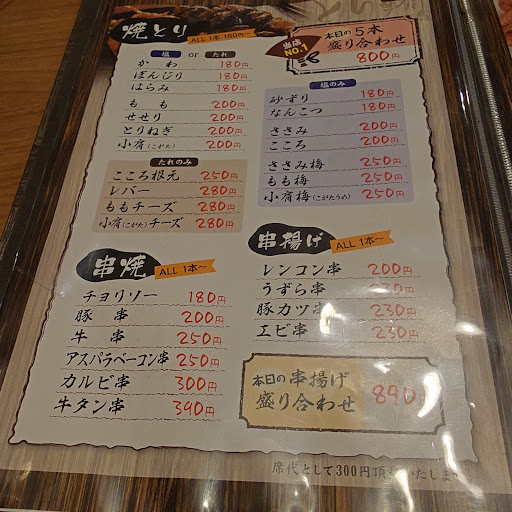 焼とり ALL 1本 180円〜
塩 or たれ
かわ 180円
ぼんじり 180円
はらみ 180円
もも 200円
せせり 200円
とりねぎ 200円
小肩(こがた) 200円
たれのみ
こころ根元 250円
レバー 280円
ももチーズ 280円
小肩(こがた)チーズ 280円
当店NO.1
本日の5本
盛り合わせ
800円
塩のみ
砂ずり 180円
なんこつ 180円
ささみ 200円
こころ 200円
ささみ梅 250円
もも梅 250円
小肩梅(こがたうめ) 250円
串焼 ALL 1本〜
チョリソー 180円
豚串 200円
牛串 250円
アスパラベーコン串 250円
カルビ串 300円
牛タン串 390円
串揚げ ALL 1本〜
レンコン串 200円
うずら串 230円
豚カツ串 230円
エビ串 230円
本日の串揚げ
盛り合わせ
890円
席代として300円頂戴いたしま